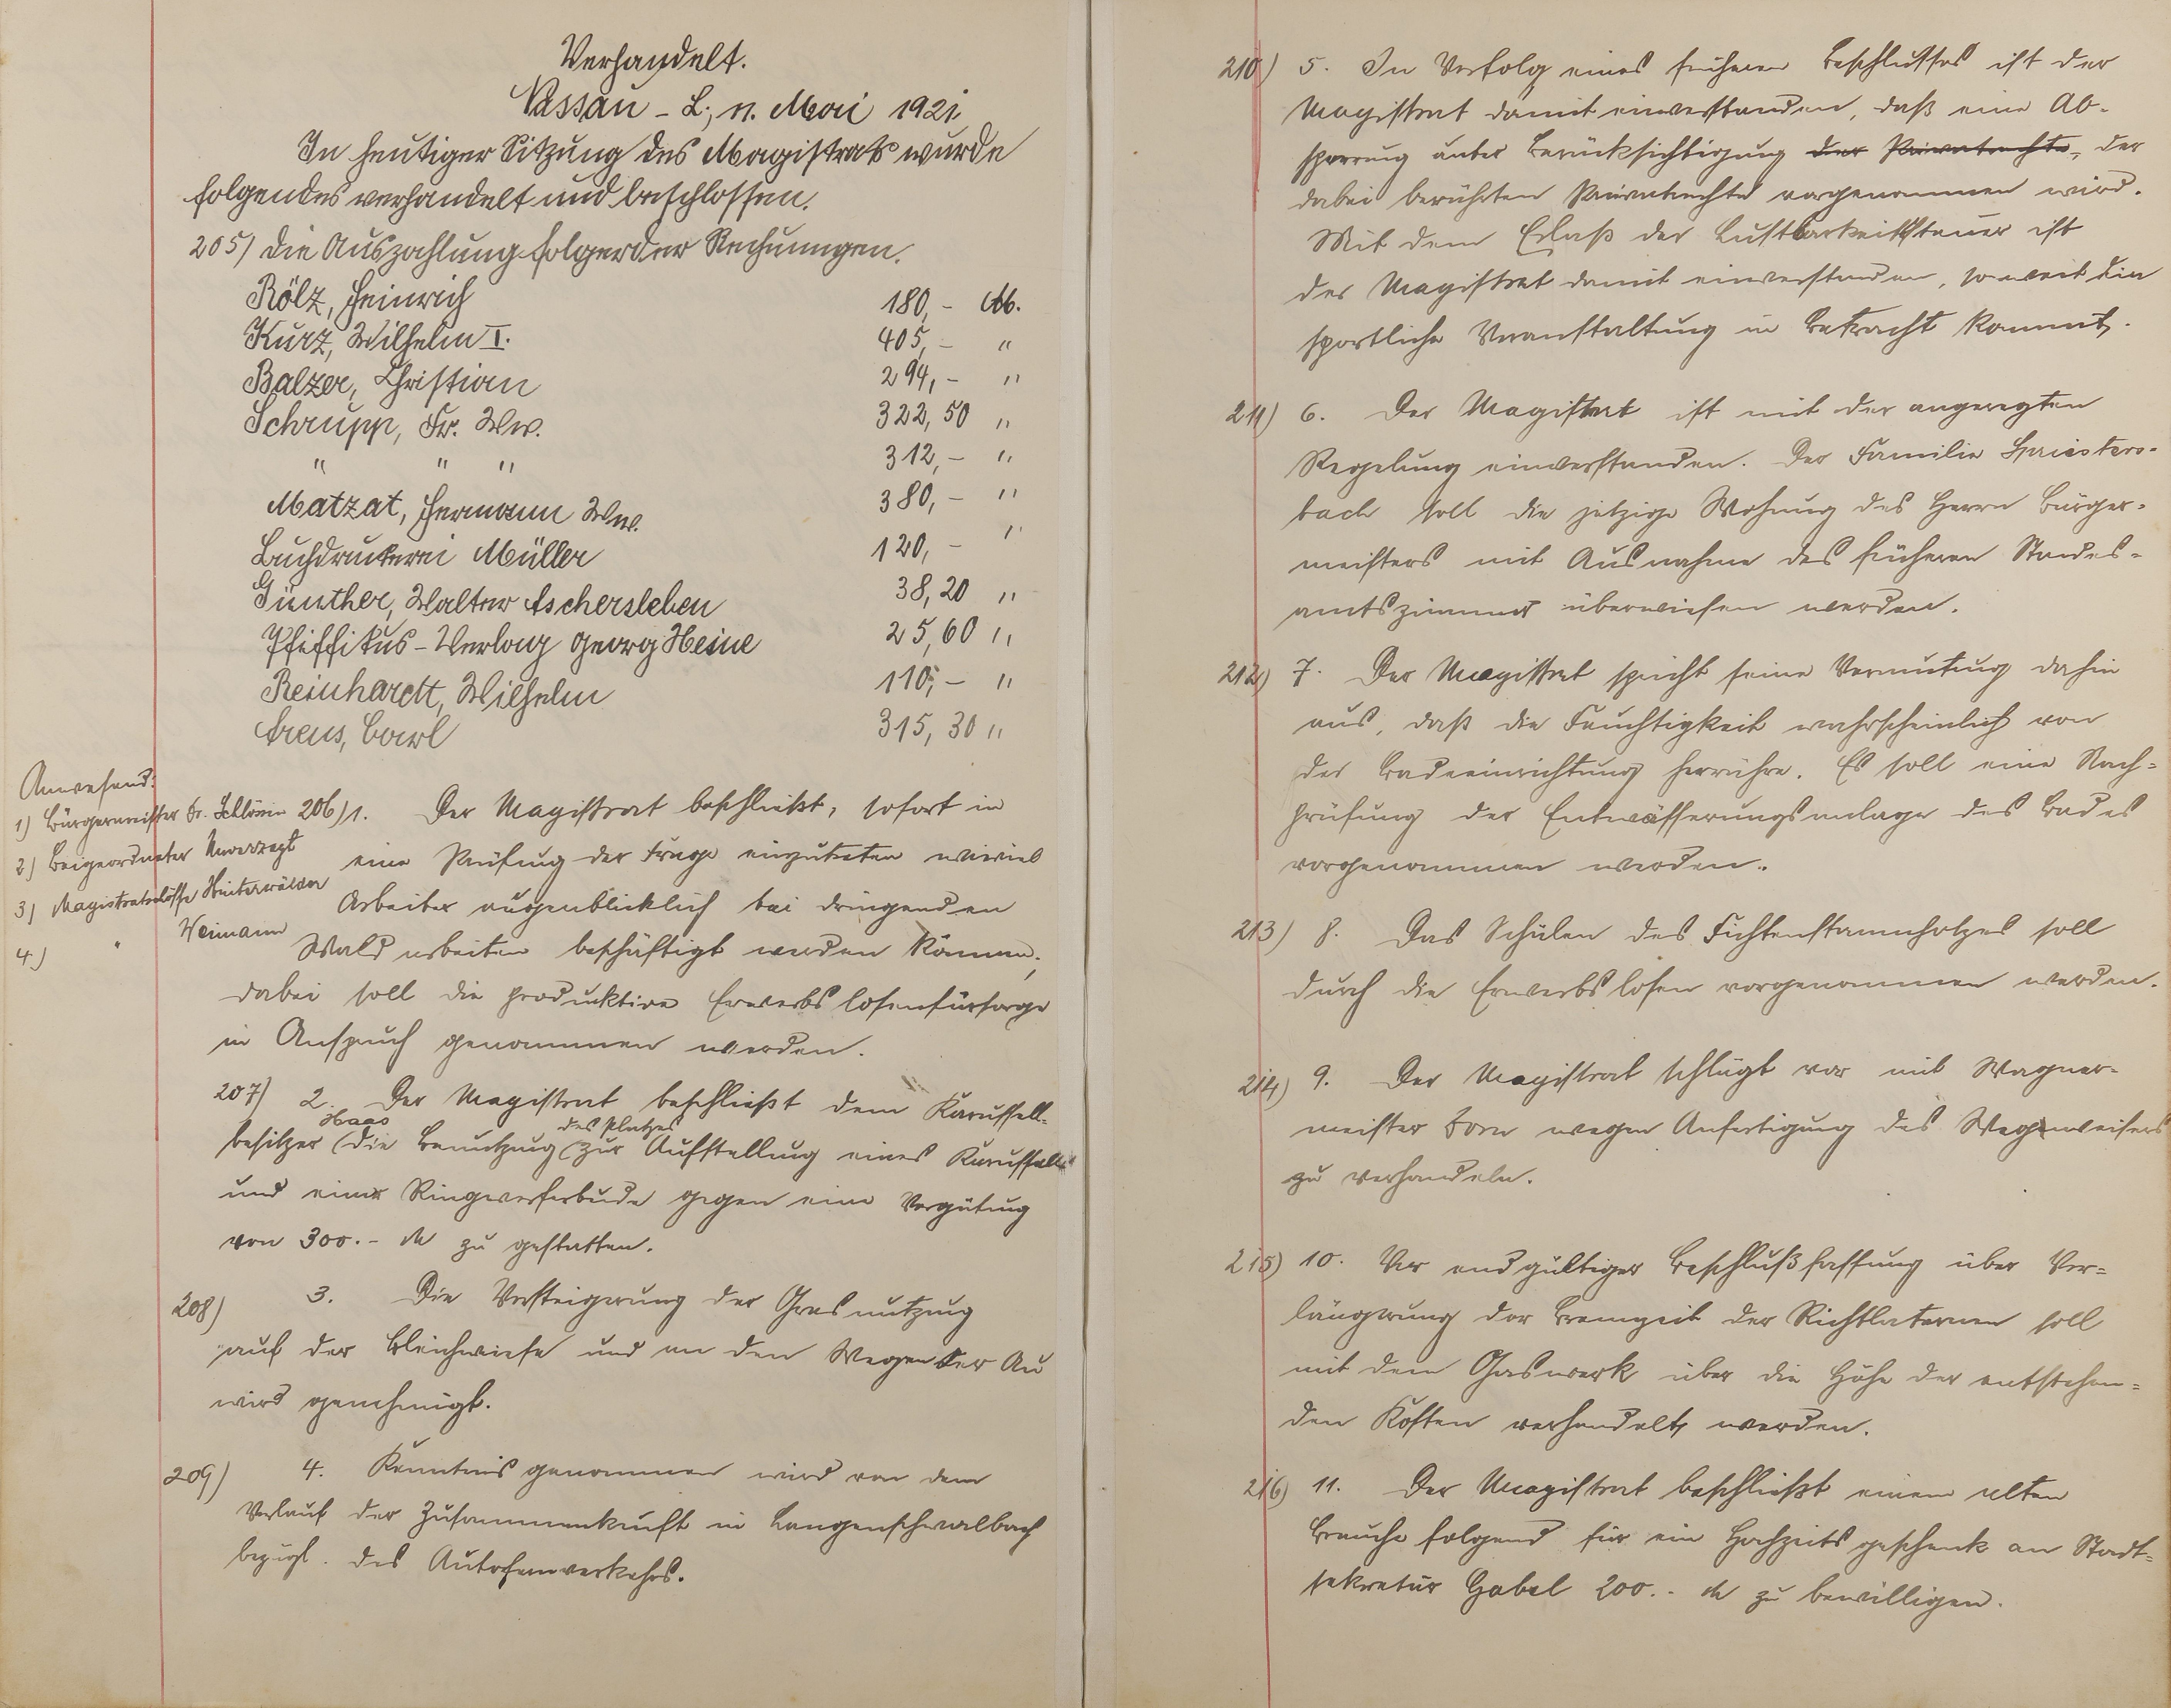 Verhandelt.
Nassau - L., 11. Mai 1921.
In heutiger Sitzung des Magistrats wurde
folgendes verhandelt und beschlossen.
205) Die Auszahlung folgender Rechnungen.
Rölz, Heinrich 180,- M.
Kurz, Wilhelm I. 405,- "
Balzer, Christian 294,- "
Schrupp, Fr. Ww. 322,50 "
" " " 312,- "
Matzat, Hermann Ww. 380,- "
Buchdruckerei Müller 120,- "
Günther, Walter Aschersleben 38,20 "
Pfiffikus-Verlag Georg Heine 25,60 "
Reinhardt, Wilhelm 110,- "
Arens, Carl 315,30 "
Anwesend:
1) Bürgermeister
2) Beigeordneter Unverzagt
3) Magistratsschöffe Hinterwälder
4) " Weimann
206) 1. Der Magistrat beschließt, sofort in
eine Prüfung der Frage einzutreten wieviel
Arbeiter augenblicklich bei dringenden
Waldarbeiten beschäftigt werden können;
dabei soll die produktive Erwerbslosenfürsorge
in Anspruch genommen werden.
207) 2. Der Magistrat beschließt dem Karussell-
besitzer Haas die Benutzung des Platzes zur Aufstellung eines Karussells
und einer Ringwerferbude gegen eine Vergütung
von 300.- M zu gestatten.
208) 3. Die Versteigerung der Grasnutzung
auf der Bleichwiese und an den Wegen der Au
wird genehmigt.
209) 4. Kenntnis genommen wird von dem
Verlauf der Zusammenkunft in Langenschwalbach
bezügl. des Autofernverkehrs.
210) 5. In Verfolg eines früheren Beschlusses ist der
Magistrat damit einverstanden, daß eine Ab-
sperrung unter Berücksichtigung der Privatrechte, der
dabei berührten Privatrechte vorgenommen wird.
Mit dem Erlaß der Lustbarkeitssteuer ist
der Magistrat damit einverstanden, soweit die
sportliche Veranstaltung in Betracht kommt.
211) 6. Der Magistrat ist mit der angeregten
Regelung einverstanden. Der Familie Spriesters-
bach soll die jetzige Wohnung des Herrn Bürger-
meisters mit Ausnahme des früheren Standes-
amtszimmer überwiesen werden.
212) 7. Der Magistrat spricht seine Vermutung dahin
aus, daß die Feuchtigkeit wahrscheinlich von
der Badeeinrichtung herrühre. Es soll eine Nach-
prüfung der Entwässerungsanlage des Bades
vorgenommen werden.
213) 8. Das Schälen des Fichtenstammholzes soll
durch die Erwerbslosen vorgenommen werden.
214) 9. Der Magistrat schlägt vor mit Wagner-
meister Born wegen Anfertigung des Wegweisers
zu verhandeln.
215) 10. Vor endgültiger Beschlußfassung über Ver-
längerung der Brennzeit der Richtlaternen soll
mit dem Gaswerk über die Höhe der entstehen-
den Kosten verhandelt werden.
216) 11. Der Magistrat beschließt einem alten
Brauche folgend für ein Hochzeitsgeschenk an Stadt-
sekretär Gabel 200.- M zu bewilligen.